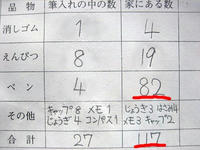 品物 筆入れの中の数 家にある数
消しゴム 1 4
えんぴつ 8 19
ペン 4 82
その他 キャップ8 メモ1 じょうぎ3 はさみ4
じょうぎ4 コンパス1 メモ3 キャップ2
合計 27 117